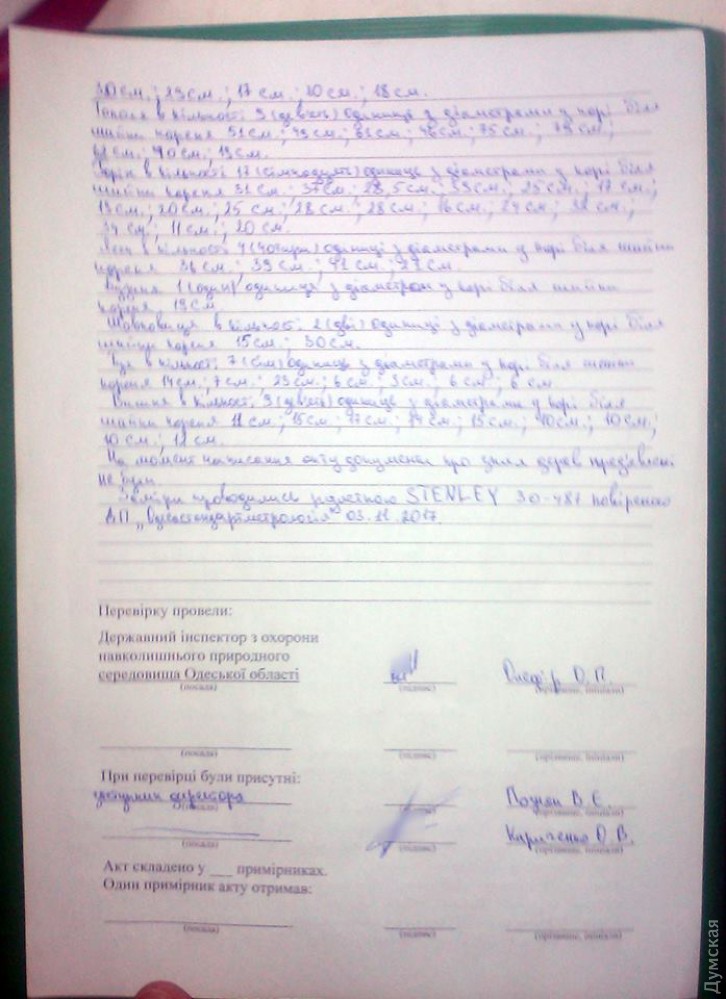 30 см.; 29 см.; 17 см.; 20 см.; 18 см.
Тополя в кількості 9 (дев'ять) одиниць з діаметрами у корі біля
шийки кореня 51 см.; 49 см.; 63 см.; 46 см.; 75 см.; 79 см.;
см. 40 см.; 19 см.
Горіх в кількості 17 (сімнадцять) одиниць з діаметрами у корі біля
шийки кореня 31 см.; 37 см.; 28,5 см.; 33 см.; 25 см.; 17 см.;
19 см.; 20 см.; 25 см.; 28 см.; 28 см.; 16 см.; 24 см.; 32 см.;
34 см.; 11 см.; 20 см.
в кількості 4 (чотири) одиниці з діаметрами у корі біля шийки
кореня 36 см.; 39 см.; 42 см.; 27 см.
1 (один) одиниця з діаметром у корі біля шийки
кореня 19 см
Шовковиця в кількості 2 (дві) одиниці з діаметрами у корі біля
шийки кореня 15 см.; 30 см.
в кількості 7 (сім) одиниць з діаметрами у корі біля шийки
кореня 14 см.; 7 см.; 23 см.; 6 см.; 9 см.; 6 см.; 6 см
Вишня в кількості 9 (дев'ять) одиниць з діаметрами у корі біля
шийки кореня 11 см.; 15 см.; 17 см.; 14 см.; 15 см.; 10 см.; 10 см.;
10 см.; 12 см.
На момент написання акту документи про знял дерев пред'явлені
не були
Заміри проводились рулеткою STENLEY 30-481 повіреною
ДП „Одесастандартметрологія" 03.11.2017
Перевірку провели:
Державний інспектор з охорони
навколишнього природного
середовища Одеської області
(посада) (підпис) (прізвище, ініціали)
(посада) (підпис) (прізвище, ініціали)
При перевірці були присутні:
заступник директора Позняк В.Є.
(посада) (прізвище, ініціали)
Кириченко О.В.
(підпис) (прізвище, ініціали)
Акт складено у ___ примірниках.
Один примірник акту отримав:
(посада) (підпис) (прізвище, ініціали)
Думская